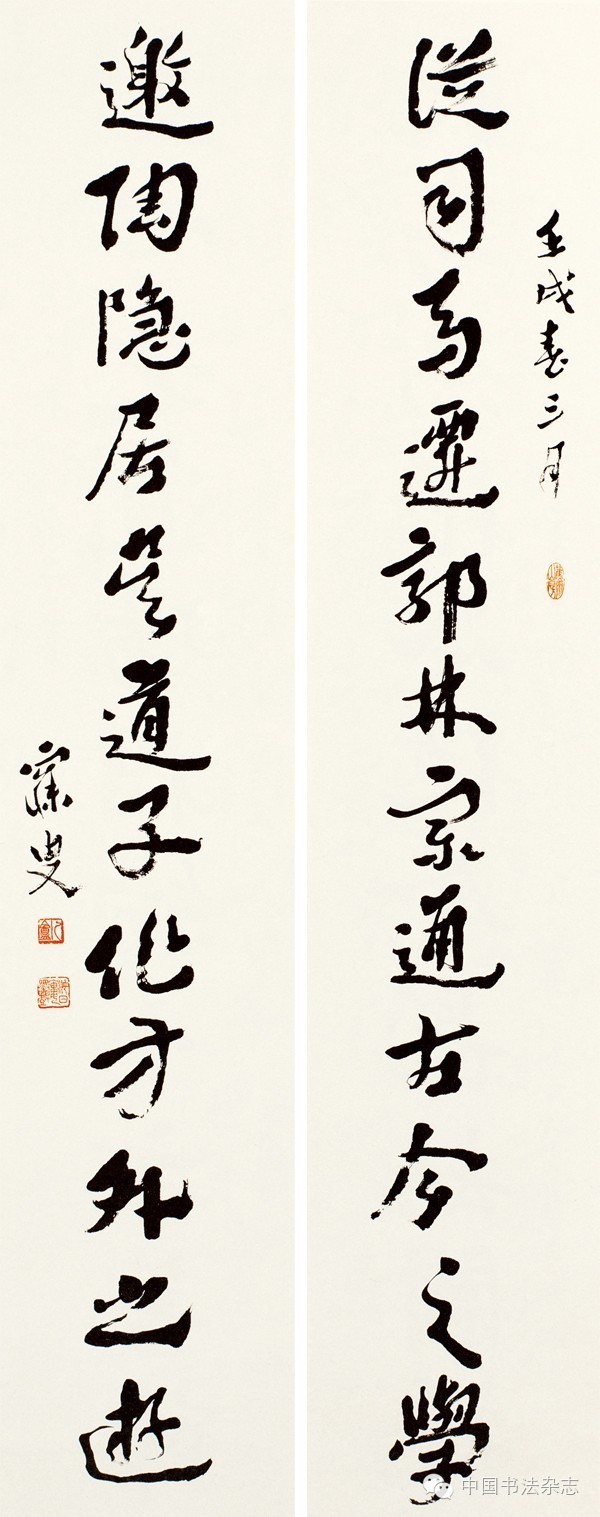 壬戌春三月
從司馬遷郭林宗通古今之學
邀陶隱居吳道子作方外之遊
寐叟
中国书法杂志